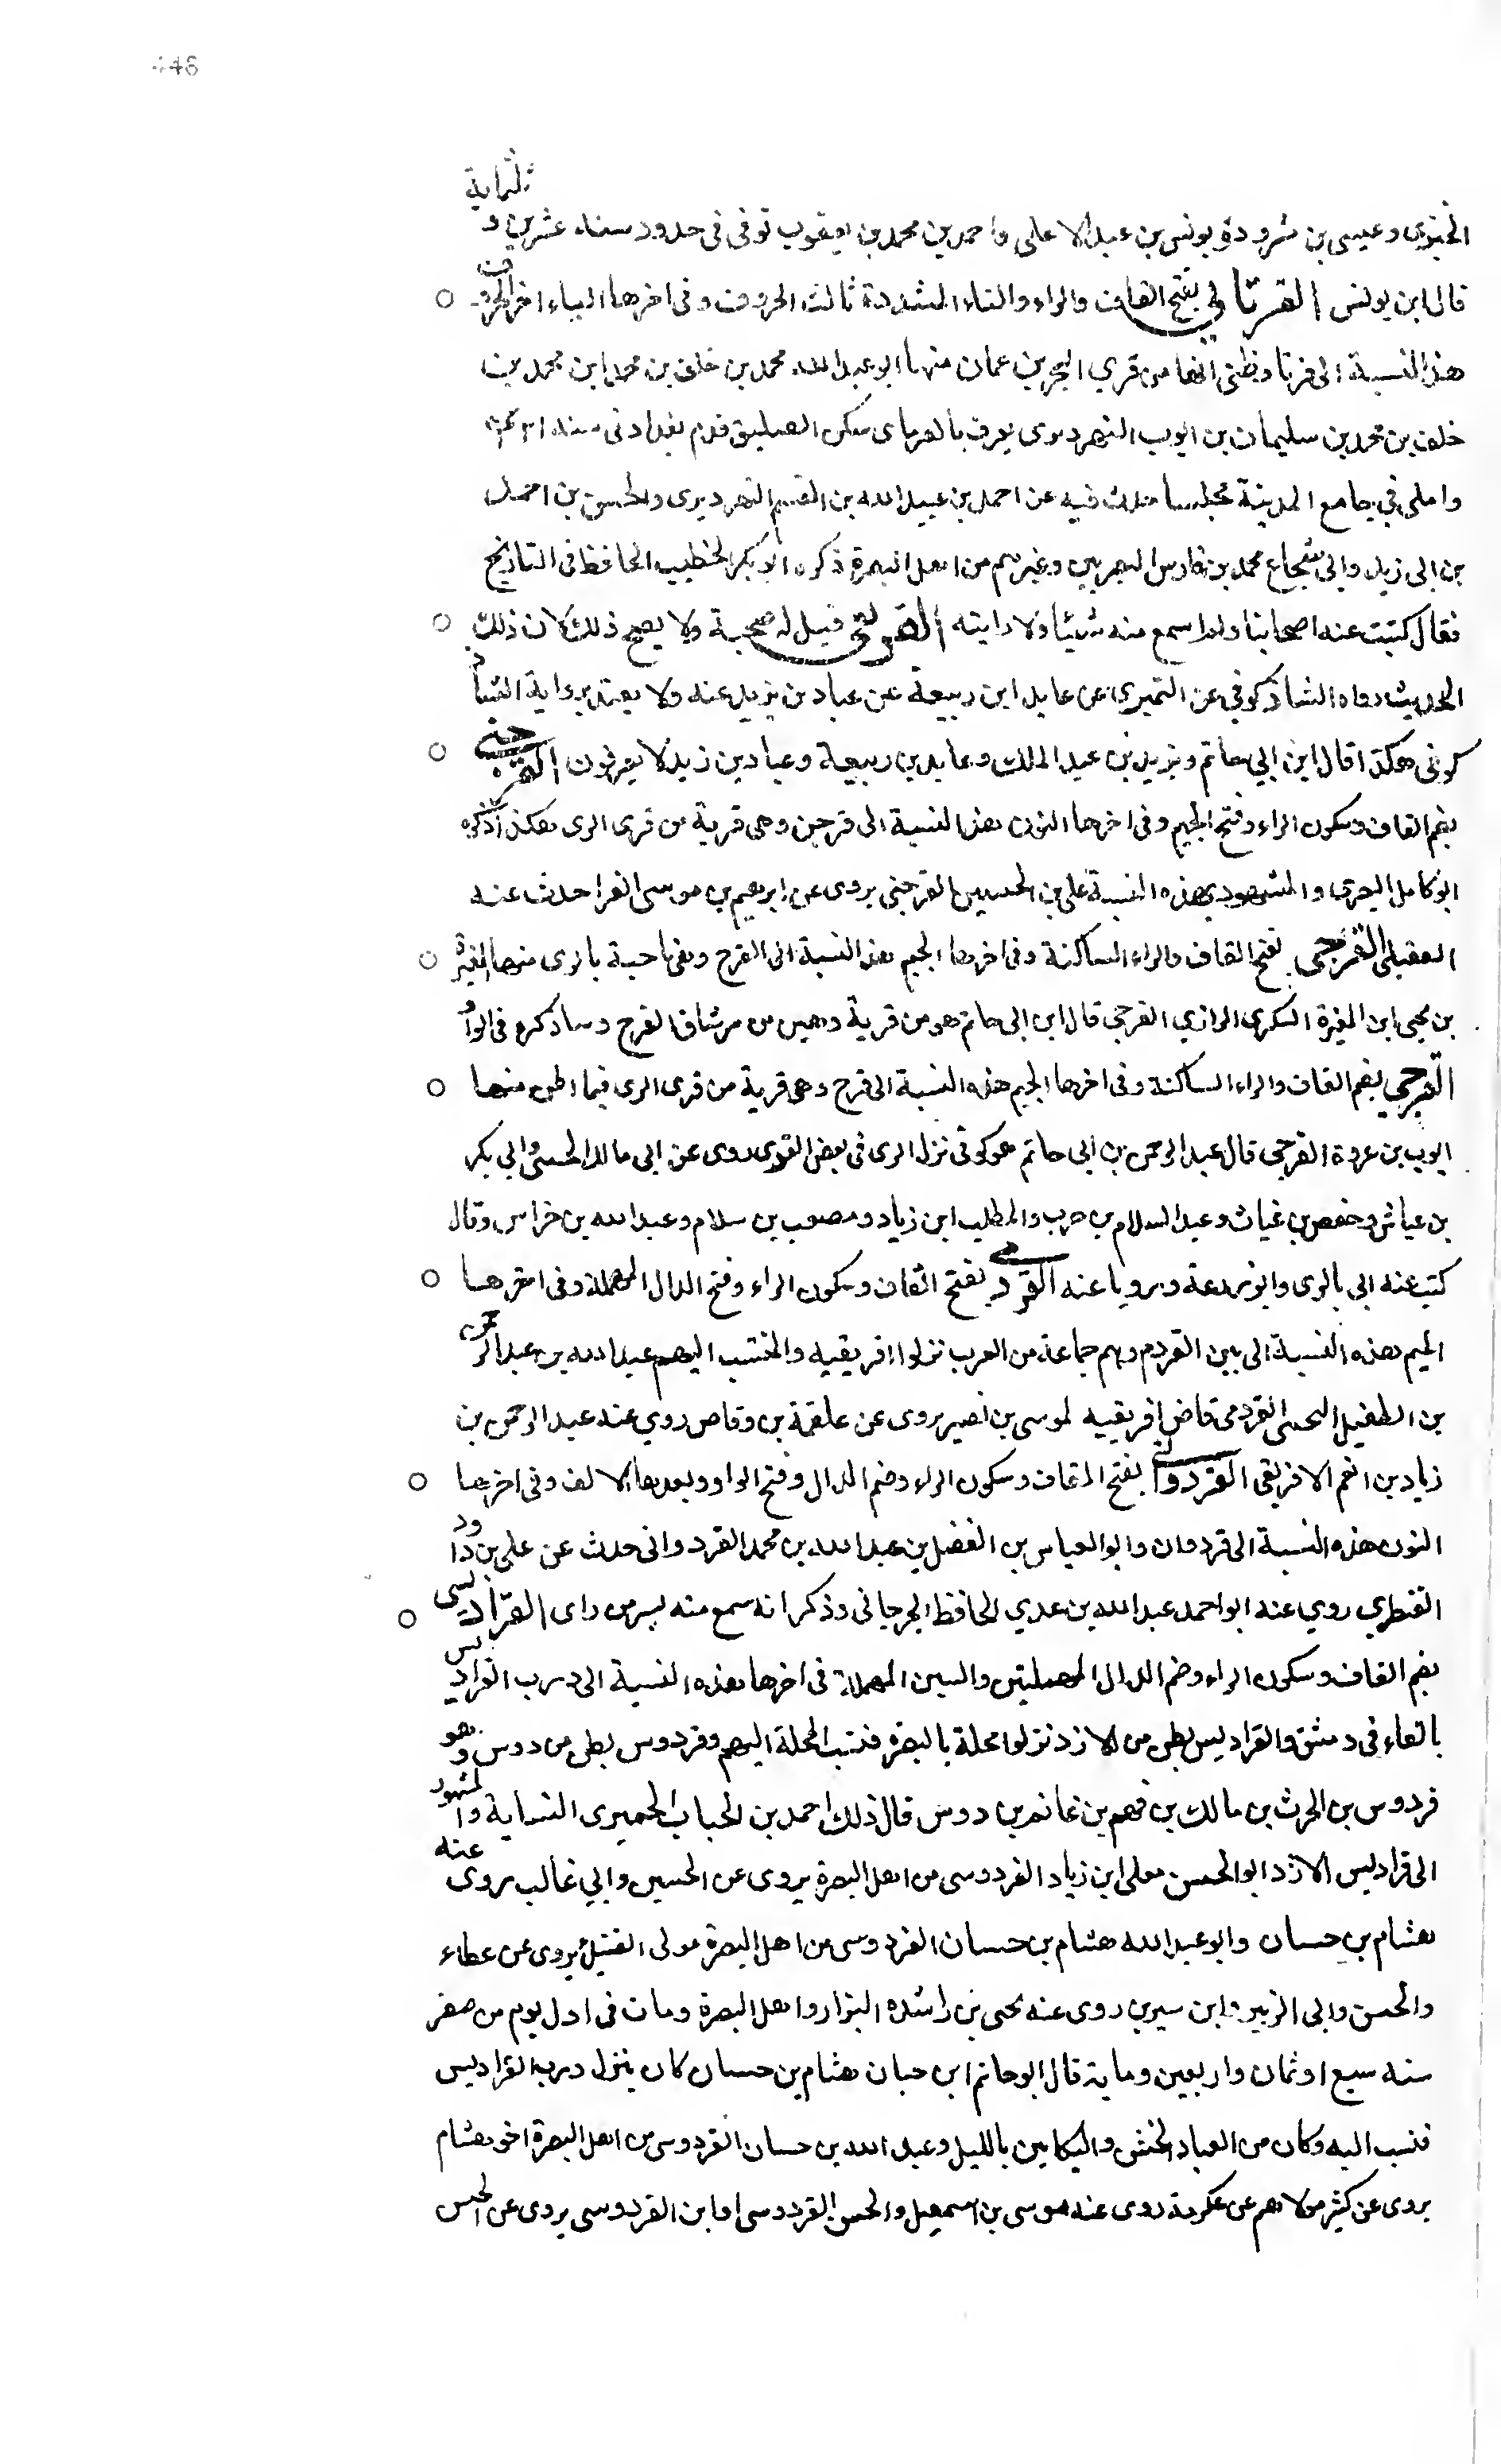 446
ثلثماية
الخيزي وعيسى بن شرودة ويونس بن عبد الاعلى واحمد بن محمد بن يعقوب توفى فى حدود سنه عشرين و
قال ابن يونس القرتاي بفتح القاف والراء والتاء المشددة ثالث الحروف وفى اخرها الياء اخر الحروف
هذه النسبة الى قرتا وظنى انها من قرى البحرين عمان منها ابو عبد الله محمد بن خلف بن محمد ابن محمد بن
خلف بن محمد بن سليمان بن ايوب النهرديرى يعرف بالقرتاى سكن الصليق قدم بغداد فى سنه
واملى في جامع المدينة مجلسا حدث فيه عن احمد بن عبيد الله بن القسم النهرديرى والحسن بن احمد
بن ابى زيد وابى شجاع محمد بن فارس البصريين وغيرهم من اهل البصرة ذكره ابو بكر الخطيب الحافظ فى التاريخ
فقال كتبت عنه اصحابنا ولم اسمع منه شيئا ولا رايته القرثعى قيل له صحبة ولا يصح ذلك لان ذلك
الحديث رواه الشاذكوني عن النميرى عن عايد ابن ربيعة عن عباد بن يزيد عنه ولا يعتد برواية الشاذ
كونى هكذا قال ابن ابي حاتم ويزيد بن عبد الملك وعايد بن ربيعة وعباد بن زيد لا يعرفون القرجنى
بضم القاف وسكون الراء وفتح الجيم وفى اخرها النون هذه النسبة الى قرجن وهى قرية من قرى الرى هكذا ذكره
ابو كامل البصرى والمشهور بهذه النسبة على بن الحسين القرجنى يروى عن ابرهيم بن موسى الفرا حدث عنه
العقيلى القرجى بفتح القاف والراء الساكنة وفى اخرها الجيم هذه النسبة الى القرج وهى ناحية بالرى منها المغيرة
بن يحيى ابن المغيرة السكرى الرازي القرجى قال ابن ابى حاتم هو من قرية دهس من رستاق القرج وساذكره فى الواو
القرجي بضم القاف والراء الساكنة وفى اخرها الجيم هذه النسبة الى قرج وهى قرية من قرى الرى فيما اظن منها
ايوب بن عروة القرجى قال عبد الرحمن بن ابى حاتم هو كوفى نزل الرى فى بعض القرى روى عن ابى مالك الجنبى وابي بكر
بن عياش وحفص بن غياث وعبد السلام بن حرب والمطلب ابن زياد ومصعب بن سلام وعبد الله بن خراش وقال
كتب عنه ابى بالرى وابو زرعة ورويا عنه القردمى بفتح القاف وسكون الراء وفتح الدال المهملة وفى اخرها
الميم هذه النسبة الى بين القردم وهم جماعة من العرب نزلوا افريقيه والمنتسب اليهم عبد الله بن عبد الرحمن
بن الطفيل القردمى قاضى افريقيه لموسى بن نصير يروى عن علقمة بن وقاص روي عنه عبد الرحمن بن
زياد بن انعم الافريقى القردوانى بفتح القاف وسكون الراء وضم الدال وفتح الواو وبعدها الالف وفى اخرها
النون هذه النسبة الى قردوان وابو العباس بن الفضل بن عبد الله بن محمد القردوانى حدث عن على بن داود
القنطري روي عنه ابو احمد عبد الله بن عدي الحافظ الجرجانى وذكر انه سمع منه بسر من راى القراديسى
بضم القاف وسكون الراء وضم الدال المهملتين والسين المهملة فى اخرها هذه النسبة الى درب القراديس
بالفاء فى دمشق والقراديس بطن من الازد نزلوا محلة بالبصرة فنسب المحلة اليهم وقردوس بطن من دوس وهو
قردوس بن الحرث بن مالك بن فهم بن غانم بن دوس قال ذلك احمد بن الحباب الحميرى النسابة والمشهور
الى قراديس الازد ابو الحسن معلى ابن زياد القردوسى من اهل البصرة يروى عن الحسين وابي غالب روى عنه
هشام بن حسان وابو عبد الله هشام بن حسان القردوسى من اهل البصرة مولى العتيك يروى عن عطاء
والحسن وابى الزبير وابن سيرين روى عنه يحى بن راشد البزار واهل البصرة ومات فى اول يوم من صفر
سنه سبع او ثمان واربعين وماية قال ابو حاتم ابن حبان هشام بن حسان كان ينزل درب القراديس
فنسب اليه وكان من العباد الخشن والبكايين بالليل وعبد الله بن حسان القردوسى من اهل البصرة اخو هشام
يروى عن كثير مولاهم عن عكرمة روى عنه موسى بن اسمعيل والحسن القردوسى او ابن القردوسى يروى عن الحسن